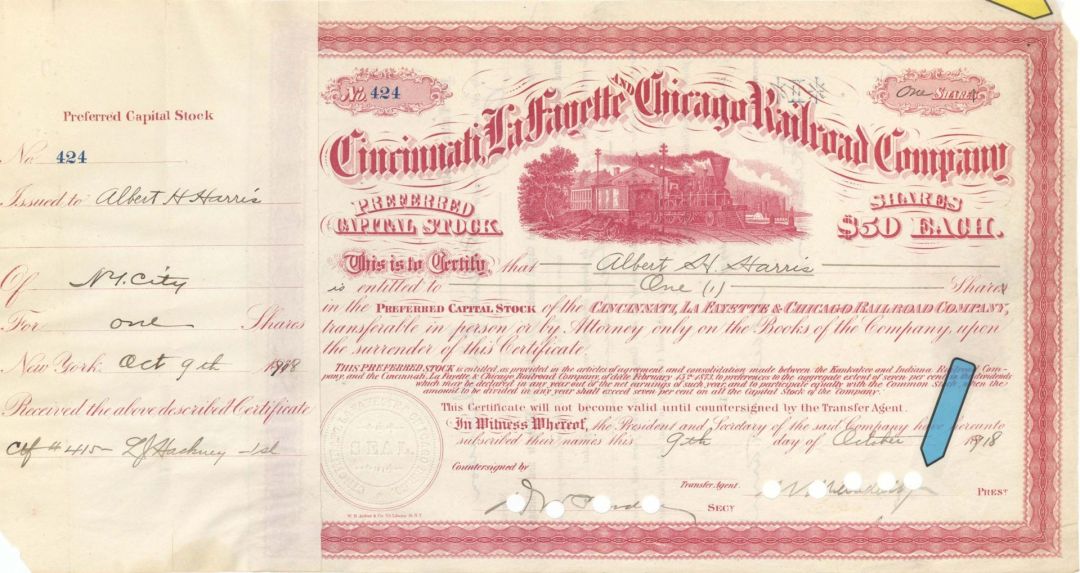 Preferred Capital Stock
No. 424
Issued to Albert H Harris
Of N.Y. City
For one Shares
New York Oct 9th 1918
Received the above described Certificate
Ctf # 415- Hackney
No. 424
One Share
Cincinnati, La Fayette AND Chicago Railroad Company
PREFERRED CAPITAL STOCK.
SHARES $50 EACH.
This is to Certify, that Albert H. Harris
is entitled to One (1) Share
in the PREFERRED CAPITAL STOCK of the CINCINNATI, LA FAYETTE & CHICAGO RAILROAD COMPANY,
transferable in person or by Attorney only on the Books of the Company, upon
the surrender of this Certificate.
THIS PREFERRED STOCK is entitled, as provided in the articles of agreement and consolidation made between the Kankakee and Indiana Railroad Com-
pany, and the Cincinnati, La Fayette & Chicago Railroad Company, of date February 15th to preferences to the aggregate extent of seven per cent in the dividends
which may be declared in any year out of the net earnings of such year, and to participate equally with the Common Stock, when the
amount to be divided in any year shall exceed seven per cent on all the Capital Stock of the Company.
This Certificate will not become valid until countersigned by the Transfer Agent.
In Witness Whereof, the President and Secretary of the said Company have hereunto
subscribed their names this 9th day of October 1918
Countersigned by
Transfer Agent.
PREST
SECY